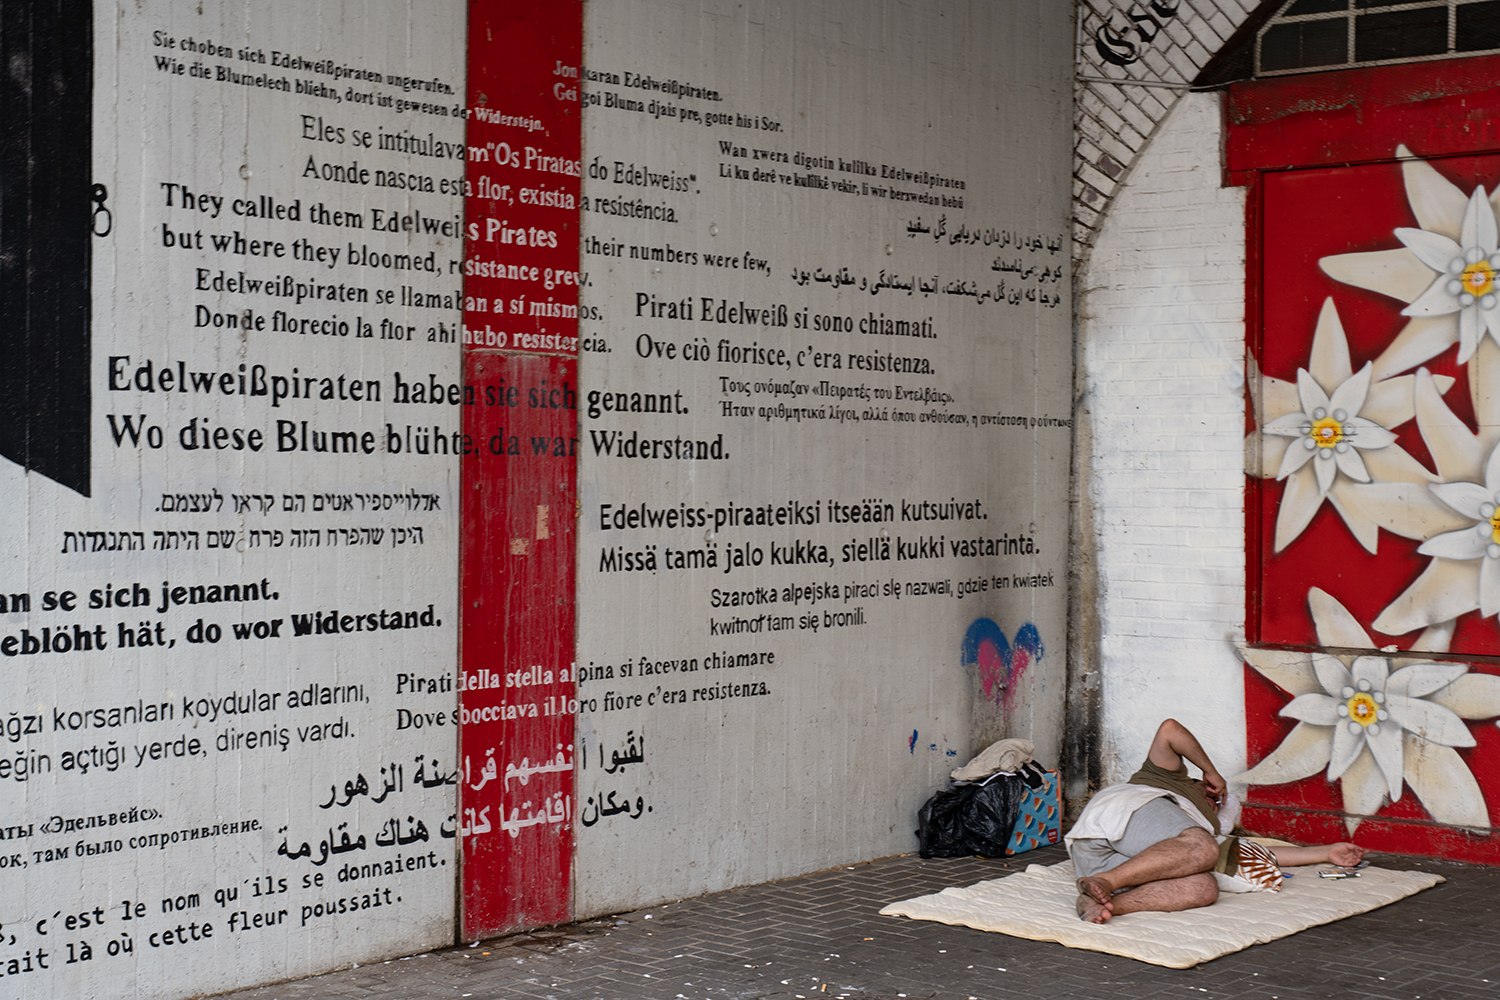 Sie choben sich Edelweißpiraten ungerufen.
Wie die Blumelech bliehn, dort ist gewesen der Widerstejn.
Jon karan Edelweißpiraten.
Gei goi Bluma djais pre, gotte his i Sor.
Eles se intitulavam "Os Piratas do Edelweiss".
Aonde nascia esta flor, existia a resistência.
Wan xwera digotin kulîlka Edelweißpiraten
Li ku derê ve kulîlkê vekir, li wir berxwedan hebû
They called them Edelweiss Pirates their numbers were few,
but where they bloomed, resistance grew.
آنها خود را دزدان دریایی گُل سفید
کوهی می‌نامیدند
هرجا که این گُل می‌شکفت، آنجا ایستادگی و مقاومت بود
Edelweißpiraten se llamaban a sí mismos.
Donde florecio la flor ahi hubo resistencia.
Pirati Edelweiß si sono chiamati.
Ove ciò fiorisce, c'era resistenza.
Edelweißpiraten haben sie sich genannt.
Wo diese Blume blühte, da war Widerstand.
Τους ονόμαζαν «Πειρατές του Εντελβάις».
Ήταν αριθμητικά λίγοι, αλλά όπου ανθούσαν, η αντίσταση φούντωνε
אדלווייספיראטים הם קראו לעצמם.
היכן שהפרח הזה פרח שם היתה התנגדות
Edelweiss-piraateiksi itseään kutsuivat.
Missä tämä jalo kukka, siellä kukki vastarinta.
Szarotka alpejska piraci się nazwali, gdzie ten kwiatek
kwitnoł tam się bronili.
an se sich jenannt.
eblöht hät, do wor Widerstand.
ağzı korsanları koydular adlarını,
eğin açtığı yerde, direniş vardı.
Pirati della stella alpina si facevan chiamare
Dove sbocciava il loro fiore c'era resistenza.
لقَّبوا أنفسهم قراصنة الزهور
ومكان إقامتها كانت هناك مقاومة.
аты «Эдельвейс».
ок, там было сопротивление.
ß, c'est le nom qu'ils se donnaient.
tait là où cette fleur poussait.
Ede